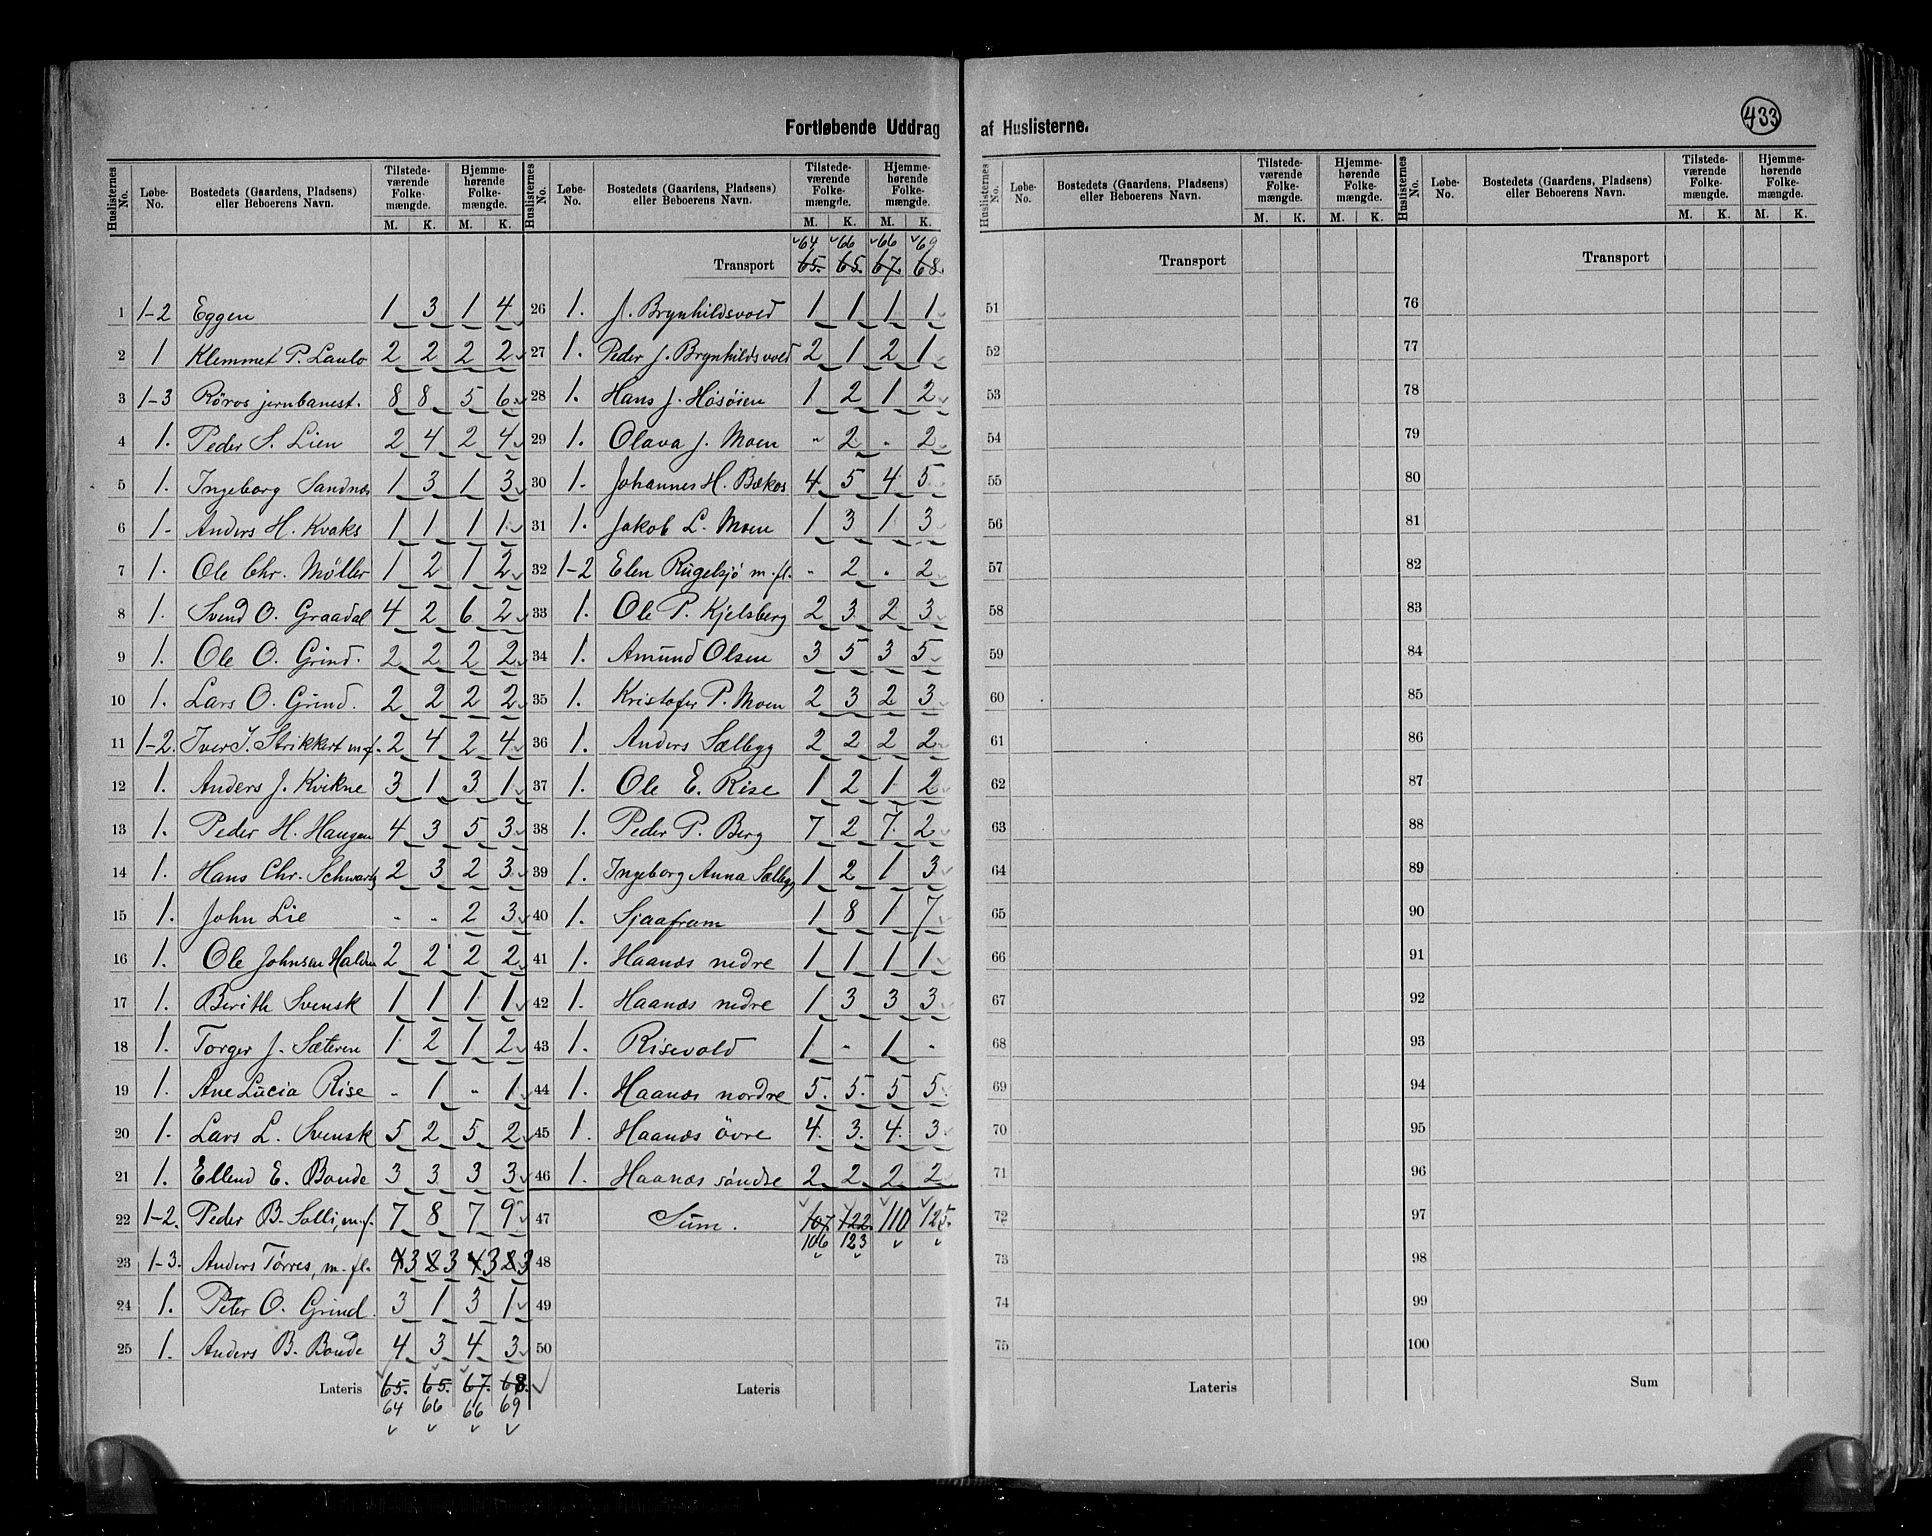 Fortløbende Uddrag af Huslisterne.
433
Huslisternes No. Løbe-No. Bostedets (Gaardens, Pladsens) eller Beboerens Navn. Tilstedeværende Folkemængde. M. K. Hjemmehørende Folkemængde. M. K.
1 1-2 Eggen 1 3 1 4
2 1 Klemmet P. Laulo 2 2 2 2
3 1-3 Röros jernbanest. 8 8 5 6
4 1. Peder S. Lien 2 4 2 4
5 1. Ingeborg Sandnæs 1 3 1 3
6 1- Anders H. Kvaks 1 1 1 1
7 1. Ole Chr. Møller 1 2 1 2
8 1. Svend O. Graadal 4 2 6 2
9 1. Ole O. Grind. 2 2 2 2
10 1. Lars O. Grind. 2 2 2 2
11 1-2. Iver J. Strikkert m.f. 2 4 2 4
12 1. Anders J. Kvikne 3 1 3 1
13 1. Peder H. Haugen 4 3 5 3
14 1. Hans Chr. Schwartz 2 3 2 3
15 1. John Lie - - 2 3
16 1. Ole Johnsen Halden 2 2 2 2
17 1. Berith Svensk 1 1 1 1
18 1. Torger J. Sæteren 1 2 1 2
19 1. Ane Lucia Rise - 1 - 1
20 1. Lars L. Svensk 5 2 5 2
21 1. Ellend E. Bonde 3 3 3 3
22 1-2. Peder B. Solli, m.f. 7 8 7 9
23 1-3. Anders Tørres, m. fl. 4 3 2 3 4 3 2 3
24 1. Peter O. Grind. 3 1 3 1
25 1. Anders B. Bonde 4 3 4 3
Lateris 65. 65. 67. 68.
64 66 66 69
Huslisternes No. Løbe-No. Bostedets (Gaardens, Pladsens) eller Beboerens Navn. Tilstedeværende Folkemængde. M. K. Hjemmehørende Folkemængde. M. K.
64 66 66 69
Transport 65. 65. 67. 68.
26 1. J. Brynhildsvold 1 1 1 1
27 1. Peder J. Brynhildsvold 2 1 2 1
28 1. Hans J. Høsøien 1 2 1 2
29 1. Olava J. Moen - 2 - 2
30 1. Johannes H. Bækos 4 5 4 5
31 1. Jakob L. Moen 1 3 1 3
32 1-2 Elen Rugelsjö m. fl. - 2 - 2
33 1. Ole P. Kjelsberg 2 3 2 3
34 1. Amund Olsen 3 5 3 5
35 1. Kristofer P. Moen 2 3 2 3
36 1. Anders Sælbyg 2 2 2 2
37 1. Ole E. Rise 1 2 1 2
38 1. Peder P. Berg 7 2 7. 2
39 1. Ingeborg Anna Sælbyg 1 2 1 3
40 1. Sjaafram 1 8 1 7
41 1. Haanæs nedre 1 1 1 1
42 1. Haanæs nedre 1 3 3 3
43 1. Risevold 1 - 1 -
44 1. Haanæs nordre 5. 5. 5 5
45 1. Haanæs övre 4. 3. 4. 3
46 1. Haanæs söndre 2 2 2 2
47 Sum. 107. 122. 110 125.
48 106 123
49
50
Lateris
Huslisternes No. Løbe-No. Bostedets (Gaardens, Pladsens) eller Beboerens Navn. Tilstedeværende Folkemængde. M. K. Hjemmehørende Folkemængde. M. K.
Transport
51
52
53
54
55
56
57
58
59
60
61
62
63
64
65
66
67
68
69
70
71
72
73
74
75
Lateris
Huslisternes No. Løbe-No. Bostedets (Gaardens, Pladsens) eller Beboerens Navn. Tilstedeværende Folkemængde. M. K. Hjemmehørende Folkemængde. M. K.
Transport
76
77
78
79
80
81
82
83
84
85
86
87
88
89
90
91
92
93
94
95
96
97
98
99
100
Sum